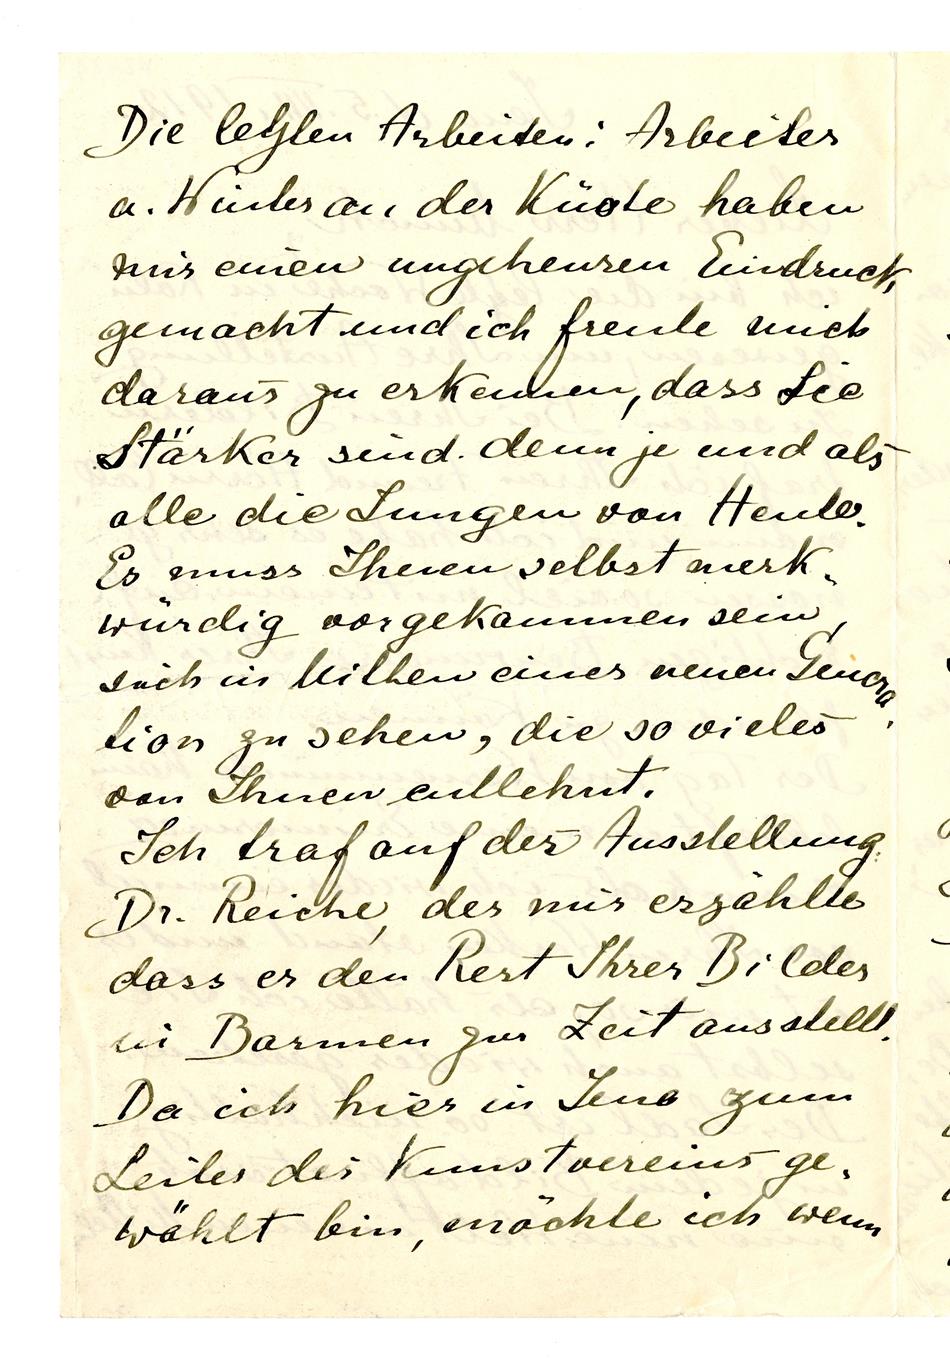 Die letzten Arbeiten: Arbeiter
u. Winter an der Küste haben
mir einen ungeheuren Eindruck
gemacht und ich freute mich
daraus zu erkennen, dass Sie
Stärker sind denn je und als
alle die Jungen von Heute.
Es muss Ihnen selbst merk-
würdig vorgekommen sein,
sich in Mitten einer neuen Genera-
tion zu sehen, die so vieles
von Ihnen entlehnt.
Ich traf auf der Ausstellung
Dr. Reiche, der mir erzählte
dass er den Rest Ihrer Bilder
in Barmen zur Zeit ausstellt.
Da ich hier in Jena zum
Leiter des Kunstvereins ge-
wählt bin, möchte ich wenn